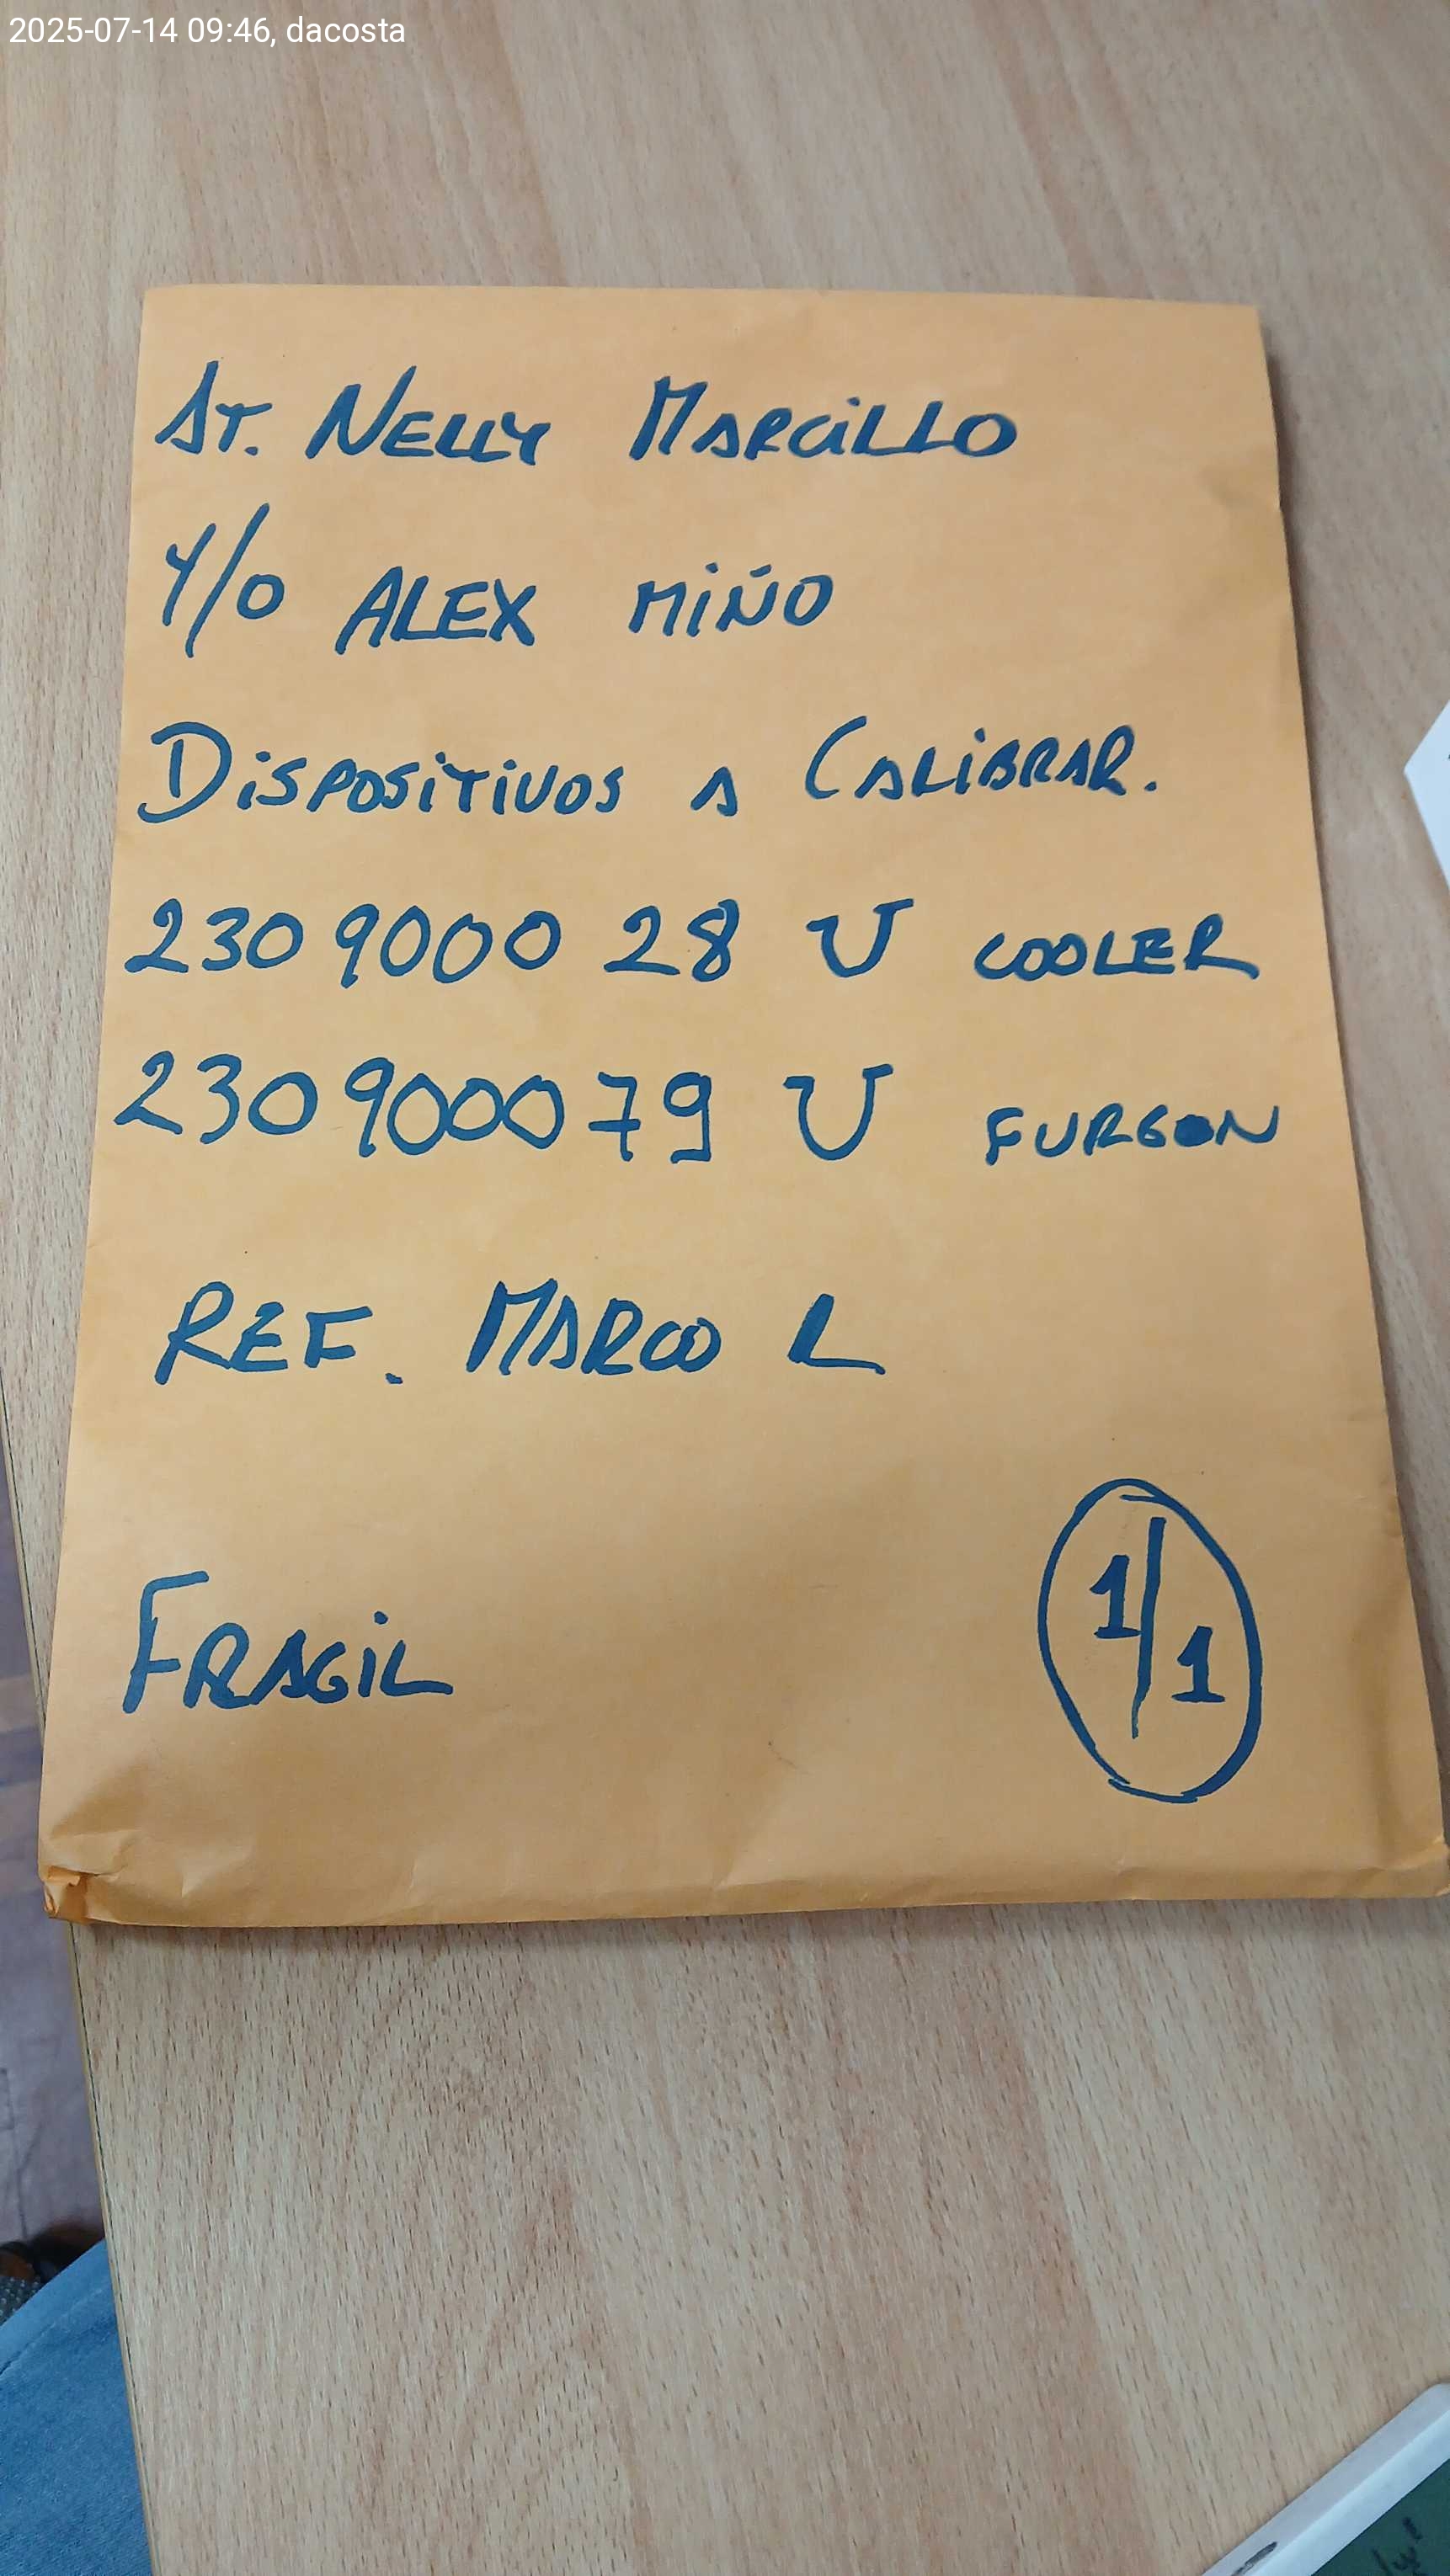 2025-07-14 09:46, dacosta
AT. NELLY MARCILLO
Y/O ALEX MIÑO
DISPOSITIVOS A CALIBRAR.
230 9000 28 U COOLER
230 900079 U FURGON
REF. MARCO R
FRAGIL
1/1